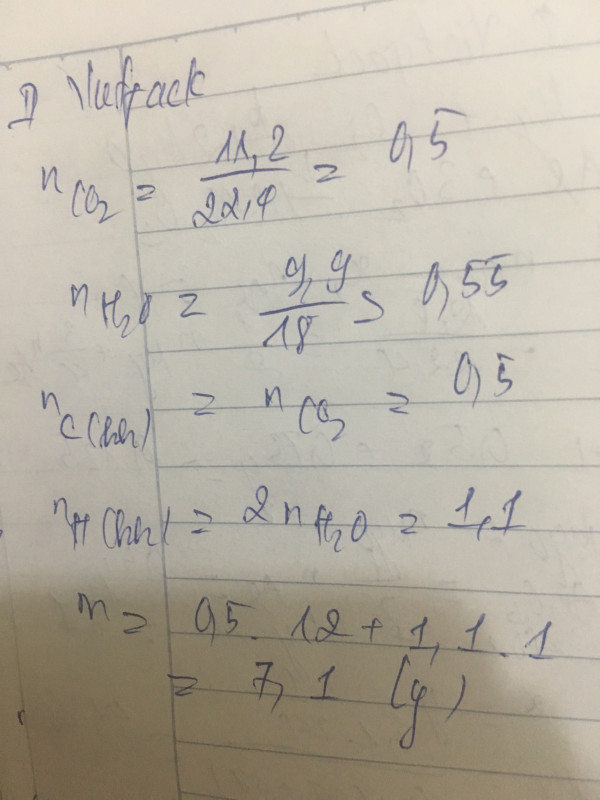 n CO2 = 11,2 / 22,4 = 0,5
n H2O = 9,9 / 18 = 0,55
n C(hh) = n CO2 = 0,5
n H(hh) = 2 n H2O = 1,1
m = 0,5 . 12 + 1,1 . 1
= 7,1 (g)